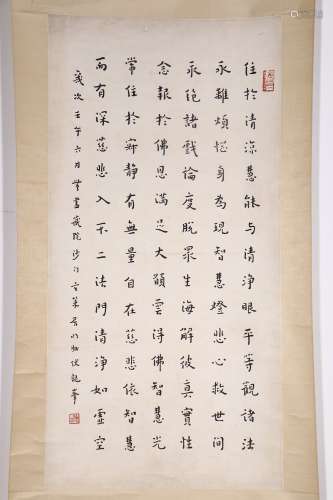 住於清涼慧能與清淨眼平等觀諸法
永離煩惱身為現智慧燈悲心救世間
永絕諸戲論度脫眾生海解彼真實性
念報於佛恩滿足大願雲得佛智慧光
常住於寂靜有無量自在慈悲依智慧
而有深慈悲入不二法門清淨如虛空
歲次壬午六月 書 沙門